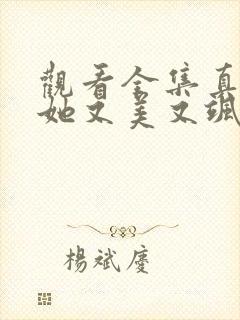 觀看全集真
她又美又颯
楊斌慶